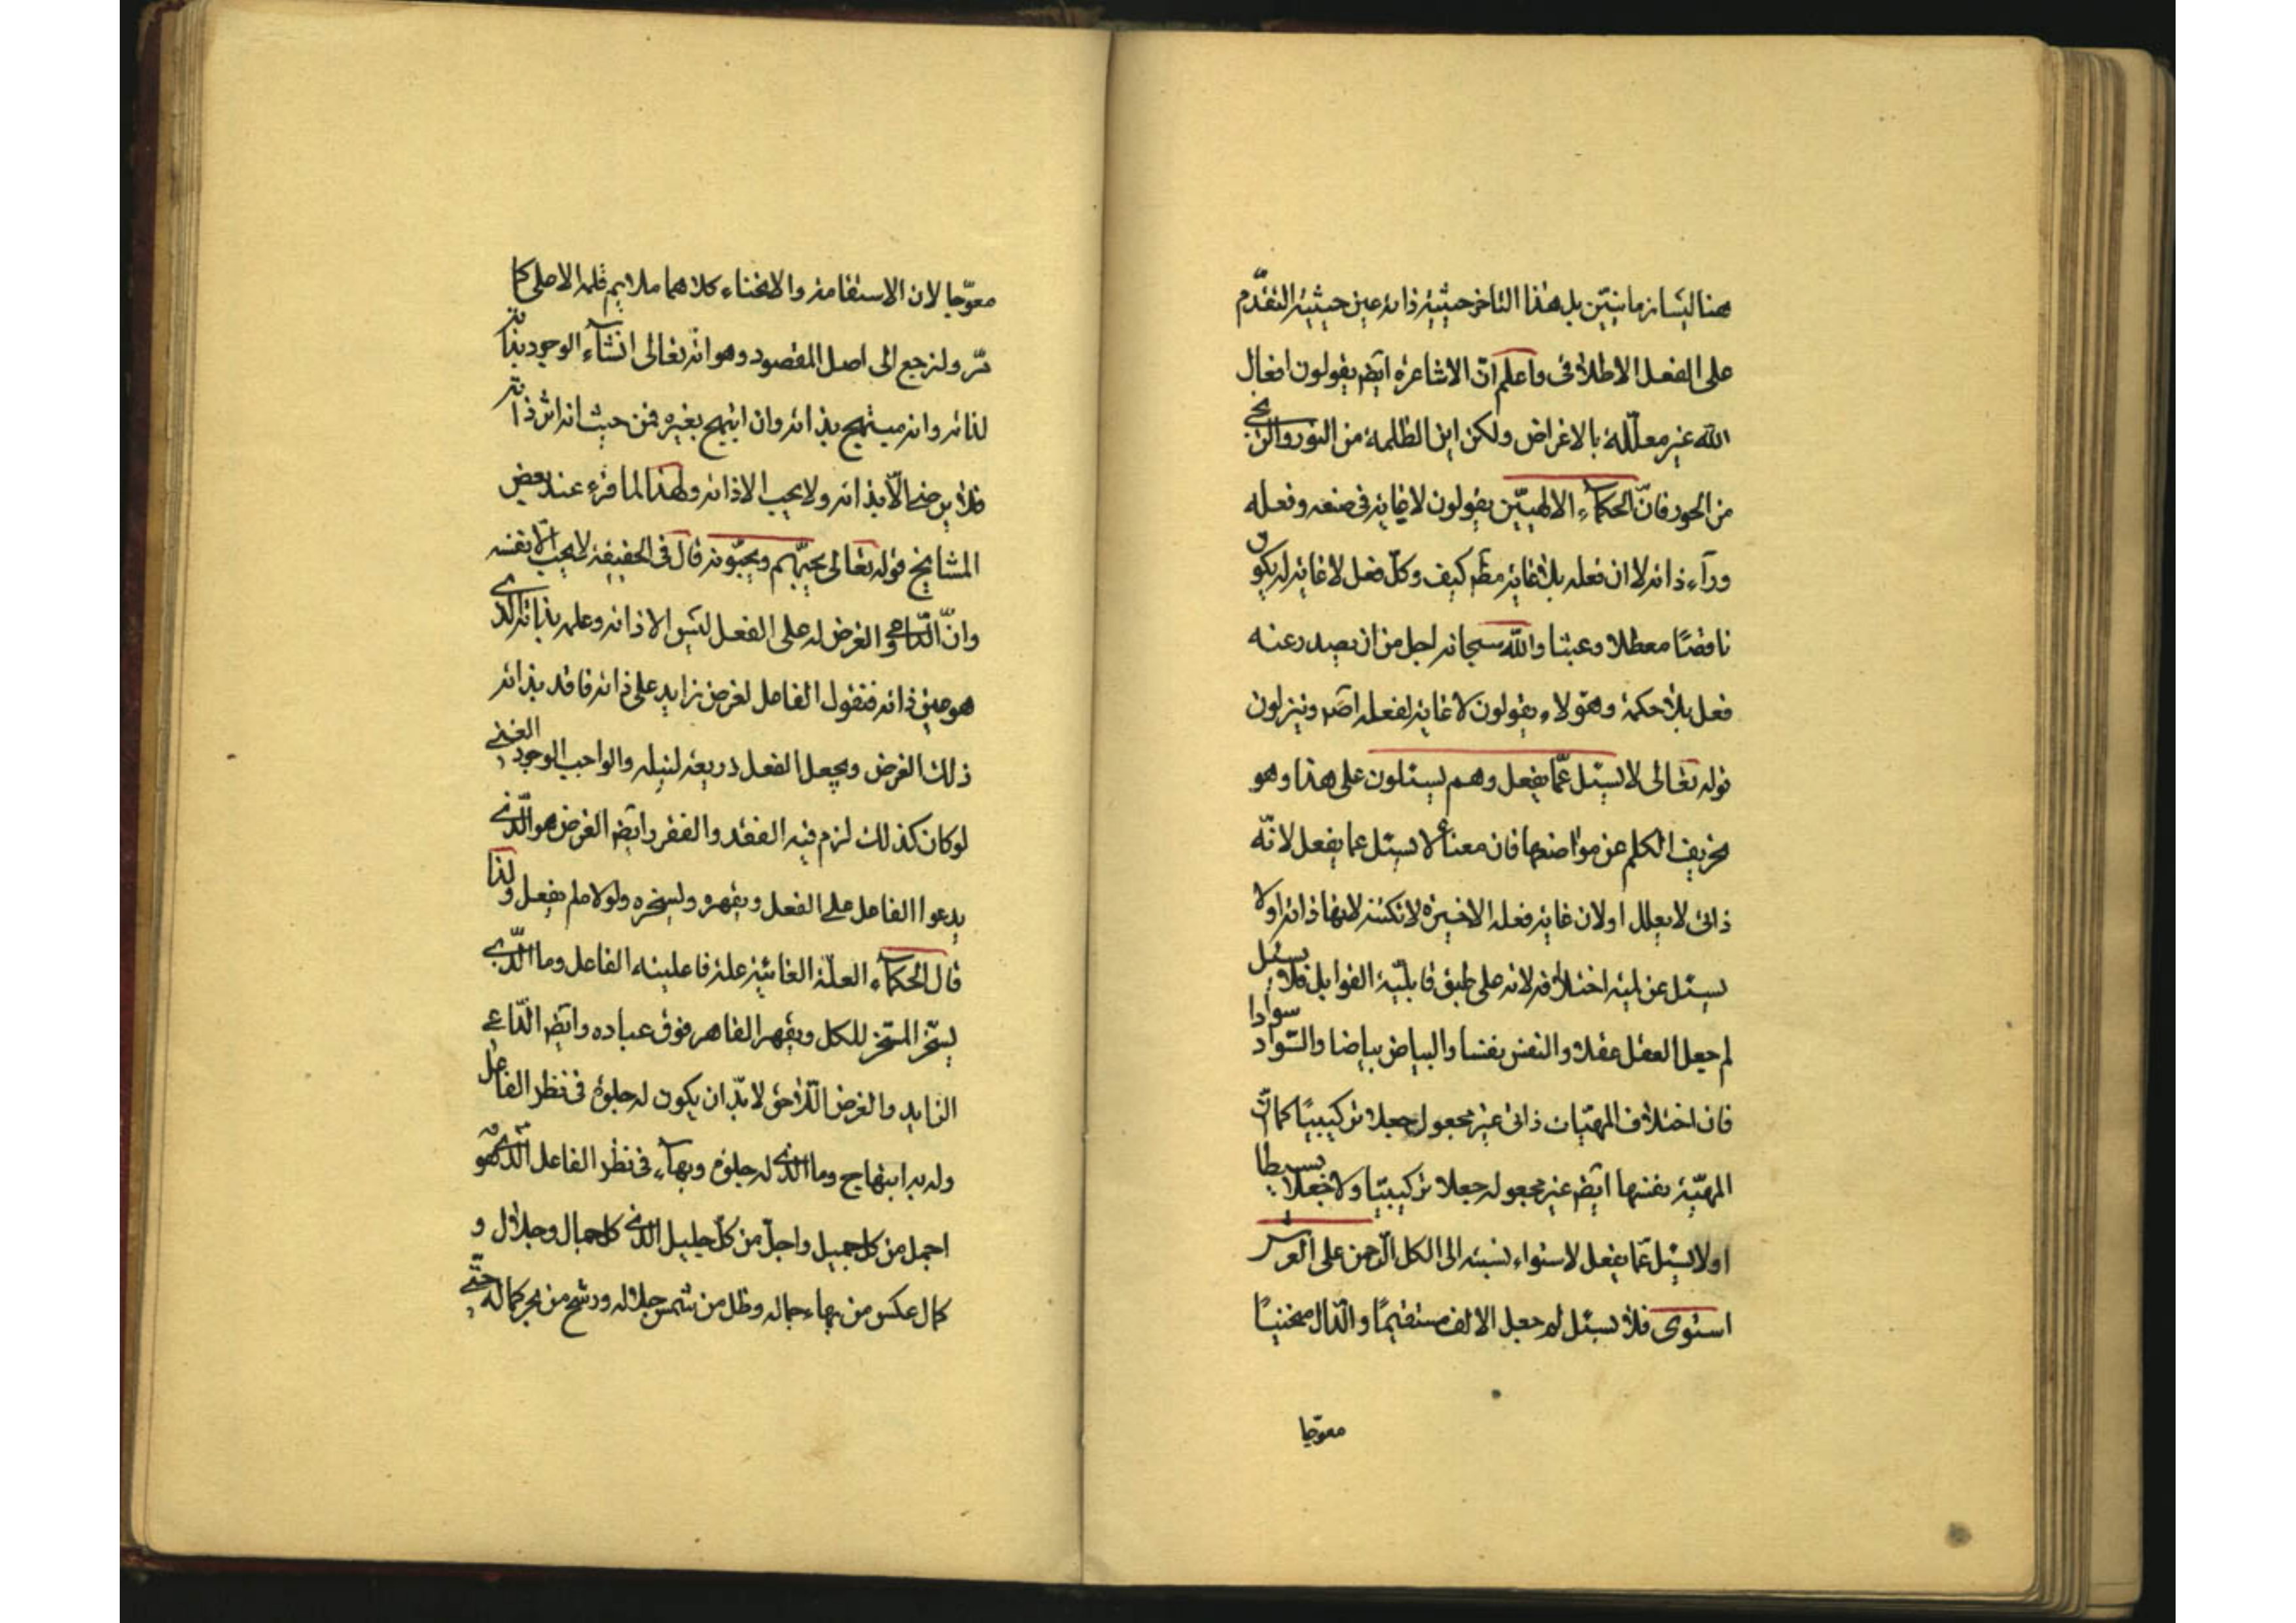 هنا ليسا زمانيّين بل هذا التاخر حيثية ذاته عين حيثية التقدّم
على الفعل الاطلاقى واعلم انّ الاشاعره ايضا يقولون افعال
الله غير معلّلة بالاغراض ولكن اين الظلمة من النور والزنجى
من الحور فانّ الحكماء الالهيّين يقولون لا غاية فى صنعه وفعله
ورآء ذاته لا ان فعله بلا غاية مطم كيف وكلّ فعل لا غاية له يكون
ناقصًا معطلا وعبثا والله سبحانه اجل من ان يصدر عنه
فعل بلا حكمة وهؤلاء يقولون لا غاية لفعله اصم وينزلون
قوله تعالى لا يسئل عمّا يفعل وهم يسئلون على هذا وهو
تحريف الكلم عن مواضعها فان معناه لا يسئل عما يفعل لانّه
ذاتى لا يعلل او لان غاية فعله الاخيرة لا تكتنه لانها ذاته او لا
يسئل عن لمية اختلافه لانه على طبق قابليّة القوابل فلا يسئل
لم جعل العقل عقلا والنفس نفسا والبياض بياضا والسّواد سوادا
فان اختلاف المهيّات ذاتى غير مجعول جعلا تركيبيًا كما انّ
المهيّة بنفسها ايضا غير مجعوله جعلا تركيبيّا ولا جعلا بسيطا
او لا يسئل عمّا يفعل لاستواء نسبته الى الكل الرّحمن على العرش
استوى فلا يسئل لم جعل الالف مستقيمًا والدّال منحنيًا
معوّجا
معوّجا لان الاستقامة والانحناء كلاهما ملايم قلمه الاصلى كما
مرّ ولنرجع الى اصل المقصود وهو انّه تعالى انشآء الوجود بذاته
لذاته وانه مبتهج بذاته وان ابتهج بغيره فمن حيث انه اثر ذاته
فلا يرضى الّا بذاته ولا يحب الا ذاته ولهذا لما قرء عند بعض
المشايخ قوله تعالى يحبّهم ويحبّونه قال فى الحقيقة لا يحبّ الّا نفسه
وانّ الدّاعى والغرض له على الفعل ليس الا ذاته وعلمه بذاته الّذى
هو عين ذاته فنقول الفاعل لغرض زايد على ذاته فاقد بذاته
ذلك الغرض ويجعل الفعل ذريعة لنيله والواجب الوجود الغنى
لو كان كذلك لزم فيه الفقد والفقر وايضا الغرض هو الّذى
يدعوا الفاعل على الفعل ويقهره ويسخره ولولا ما لم يفعل ولذا
قال الحكماء العلّة الغائيّة علة فاعلية الفاعل وما الّذى
يسخّر المسخّر للكل ويقهر القاهر فوق عباده وايضا الدّاعى
الزايد والغرض اللّاحق لا بدّ ان يكون له جلوة فى نظر الفاعل
وله به ابتهاج وما الّذى له جلوة وبهآء فى نظر الفاعل الّذى هو
اجمل من كل جميل واجلّ من كلّ جليل الّذى كل جمال وجلال و
كمال عكس من بهاء جماله وظل من شمس جلاله ورشح من بحر كماله حتّى